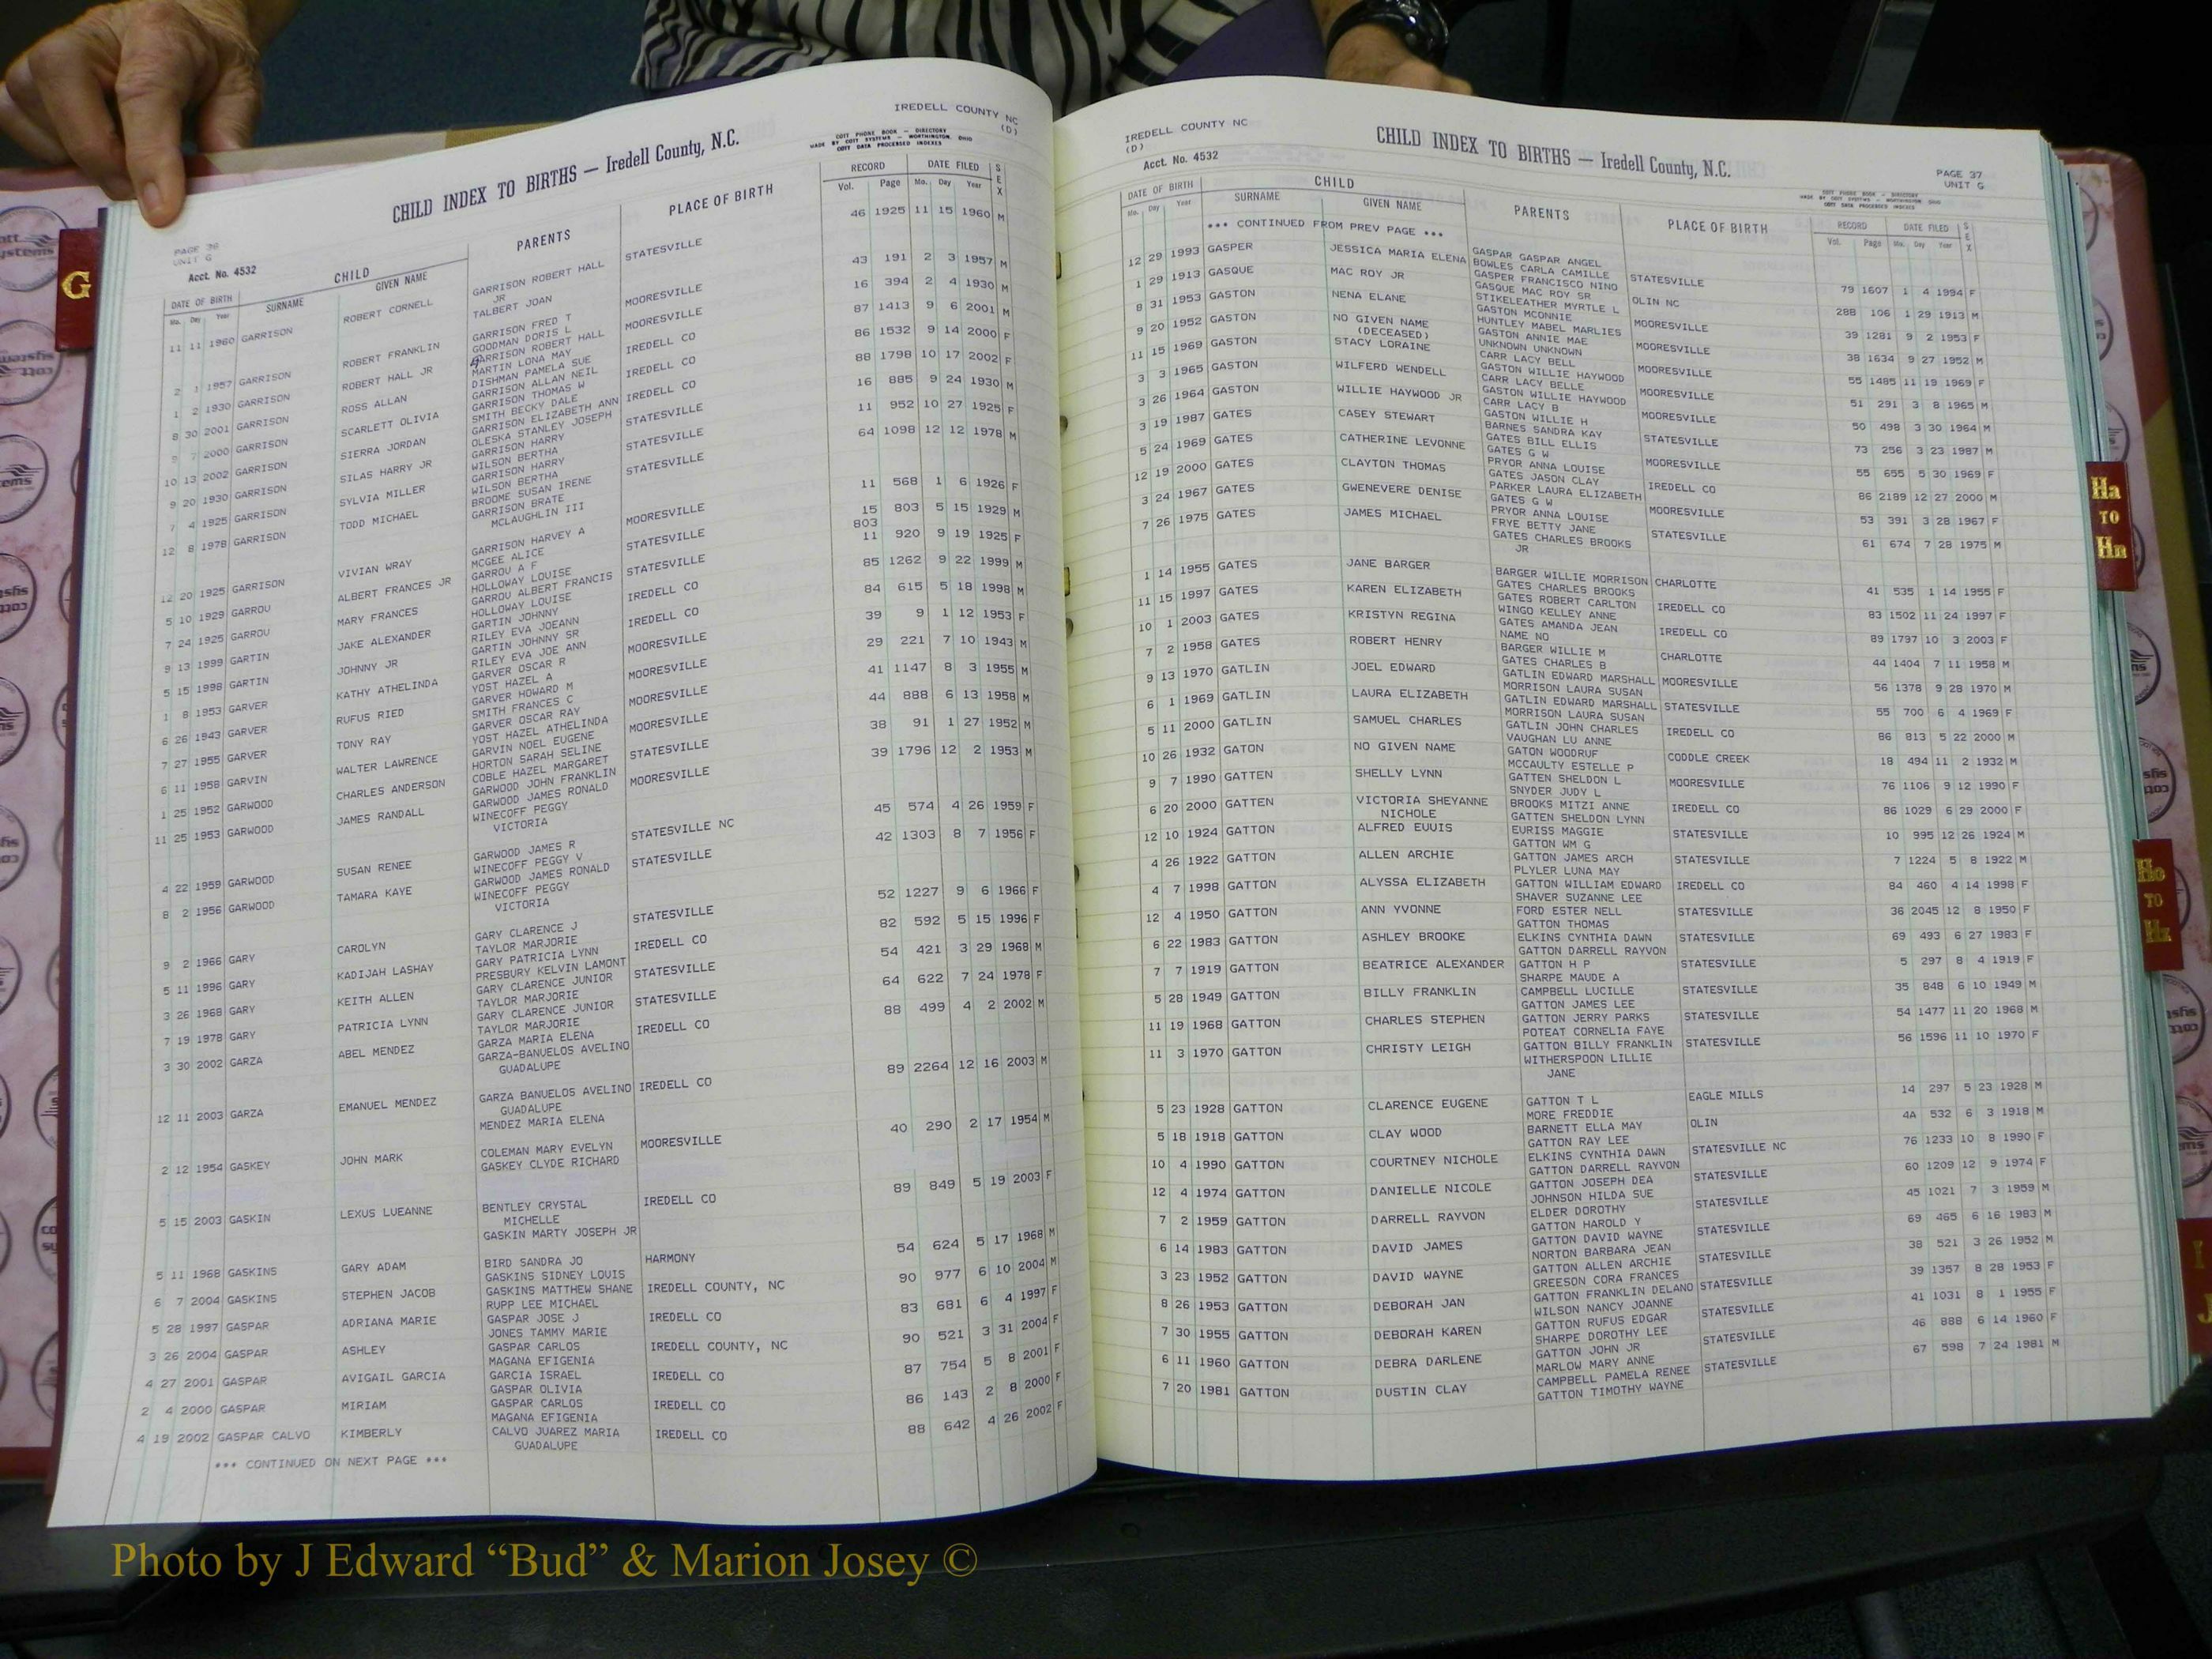 IREDELL COUNTY NC
(D)
CHILD INDEX TO BIRTHS — Iredell County, N.C.
COTT PHONE BOOK — DIRECTORY
MADE BY COTT SYSTEMS — WORTHINGTON, OHIO
COTT DATA PROCESSED INDEXES
PAGE 36
UNIT G
Acct. No. 4532
CHILD PARENTS PLACE OF BIRTH RECORD DATE FILED SEX
DATE OF BIRTH SURNAME GIVEN NAME
Mo. Day Year Vol. Page Mo. Day Year
11 11 1960 GARRISON ROBERT CORNELL GARRISON ROBERT HALL STATESVILLE 46 1925 11 15 1960 M
JR
TALBERT JOAN
2 1 1957 GARRISON ROBERT FRANKLIN GARRISON FRED T MOORESVILLE 43 191 2 3 1957 M
GOODMAN DORIS L
1 2 1930 GARRISON ROBERT HALL JR GARRISON ROBERT HALL MOORESVILLE 16 394 2 4 1930 M
MARTIN LONA MAY
8 30 2001 GARRISON ROSS ALLAN DISHMAN PAMELA SUE IREDELL CO 87 1413 9 6 2001 M
GARRISON ALLAN NEIL
9 7 2000 GARRISON SCARLETT OLIVIA GARRISON THOMAS W IREDELL CO 86 1532 9 14 2000 F
SMITH BECKY DALE
10 13 2002 GARRISON SIERRA JORDAN GARRISON ELIZABETH ANN IREDELL CO 88 1798 10 17 2002 F
OLESKA STANLEY JOSEPH
9 20 1930 GARRISON SILAS HARRY JR GARRISON HARRY STATESVILLE 16 885 9 24 1930 M
WILSON BERTHA
7 4 1925 GARRISON SYLVIA MILLER GARRISON HARRY STATESVILLE 11 952 10 27 1925 F
WILSON BERTHA
12 8 1978 GARRISON TODD MICHAEL BROOME SUSAN IRENE STATESVILLE 64 1098 12 12 1978 M
GARRISON BRATE
MCLAUGHLIN III
12 20 1925 GARRISON VIVIAN WRAY GARRISON HARVEY A MOORESVILLE 11 568 1 6 1926 F
MCGEE ALICE
5 10 1929 GARROU ALBERT FRANCES JR GARROU A F STATESVILLE 15 803 5 15 1929 M
HOLLOWAY LOUISE 803
7 24 1925 GARROU MARY FRANCES GARROU ALBERT FRANCIS STATESVILLE 11 920 9 19 1925 F
HOLLOWAY LOUISE
9 13 1999 GARTIN JAKE ALEXANDER GARTIN JOHNNY IREDELL CO 85 1262 9 22 1999 M
RILEY EVA JOEANN
5 15 1998 GARTIN JOHNNY JR GARTIN JOHNNY SR IREDELL CO 84 615 5 18 1998 M
RILEY EVA JOE ANN
1 8 1953 GARVER KATHY ATHELINDA GARVER OSCAR R MOORESVILLE 39 9 1 12 1953 F
YOST HAZEL A
6 26 1943 GARVER RUFUS RIED GARVER HOWARD M MOORESVILLE 29 221 7 10 1943 M
SMITH FRANCES C
7 27 1955 GARVER TONY RAY GARVER OSCAR RAY MOORESVILLE 41 1147 8 3 1955 M
YOST HAZEL ATHELINDA
6 11 1958 GARVIN WALTER LAWRENCE GARVIN NOEL EUGENE MOORESVILLE 44 888 6 13 1958 M
HORTON SARAH SELINE
1 25 1952 GARWOOD CHARLES ANDERSON COBLE HAZEL MARGARET STATESVILLE 38 91 1 27 1952 M
GARWOOD JOHN FRANKLIN
11 25 1953 GARWOOD JAMES RANDALL GARWOOD JAMES RONALD MOORESVILLE 39 1796 12 2 1953 M
WINECOFF PEGGY
VICTORIA
4 22 1959 GARWOOD SUSAN RENEE GARWOOD JAMES R STATESVILLE NC 45 574 4 26 1959 F
WINECOFF PEGGY V
8 2 1956 GARWOOD TAMARA KAYE GARWOOD JAMES RONALD STATESVILLE 42 1303 8 7 1956 F
WINECOFF PEGGY
VICTORIA
9 2 1966 GARY CAROLYN GARY CLARENCE J STATESVILLE 52 1227 9 6 1966 F
TAYLOR MARJORIE
5 11 1996 GARY KADIJAH LASHAY GARY PATRICIA LYNN IREDELL CO 82 592 5 15 1996 F
PRESBURY KELVIN LAMONT
3 26 1968 GARY KEITH ALLEN GARY CLARENCE JUNIOR STATESVILLE 54 421 3 29 1968 M
TAYLOR MARJORIE
7 19 1978 GARY PATRICIA LYNN GARY CLARENCE JUNIOR STATESVILLE 64 622 7 24 1978 F
TAYLOR MARJORIE
3 30 2002 GARZA ABEL MENDEZ GARZA MARIA ELENA IREDELL CO 88 499 4 2 2002 M
GARZA-BANUELOS AVELINO
GUADALUPE
12 11 2003 GARZA EMANUEL MENDEZ GARZA BANUELOS AVELINO IREDELL CO 89 2264 12 16 2003 M
GUADALUPE
MENDEZ MARIA ELENA
2 12 1954 GASKEY JOHN MARK COLEMAN MARY EVELYN MOORESVILLE 40 290 2 17 1954 M
GASKEY CLYDE RICHARD
5 15 2003 GASKIN LEXUS LUEANNE BENTLEY CRYSTAL IREDELL CO 89 849 5 19 2003 F
MICHELLE
GASKIN MARTY JOSEPH JR
5 11 1968 GASKINS GARY ADAM BIRD SANDRA JO HARMONY 54 624 5 17 1968 M
GASKINS SIDNEY LOUIS
6 7 2004 GASKINS STEPHEN JACOB GASKINS MATTHEW SHANE IREDELL COUNTY, NC 90 977 6 10 2004 M
RUPP LEE MICHAEL
5 28 1997 GASPAR ADRIANA MARIE GASPAR JOSE J IREDELL CO 83 681 6 4 1997 F
JONES TAMMY MARIE
3 26 2004 GASPAR ASHLEY GASPAR CARLOS IREDELL COUNTY, NC 90 521 3 31 2004 F
MAGANA EFIGENIA
4 27 2001 GASPAR AVIGAIL GARCIA GARCIA ISRAEL IREDELL CO 87 754 5 8 2001 F
GASPAR OLIVIA
2 4 2000 GASPAR MIRIAM GASPAR CARLOS IREDELL CO 86 143 2 8 2000 F
MAGANA EFIGENIA
4 19 2002 GASPAR CALVO KIMBERLY CALVO JUAREZ MARIA IREDELL CO 88 642 4 26 2002 F
GUADALUPE
*** CONTINUED ON NEXT PAGE ***
IREDELL COUNTY NC
(D)
Acct. No. 4532
CHILD INDEX TO BIRTHS — Iredell County, N.C.
PAGE 37
UNIT G
COTT PHONE BOOK — DIRECTORY
MADE BY COTT SYSTEMS — WORTHINGTON, OHIO
COTT DATA PROCESSED INDEXES
DATE OF BIRTH CHILD PARENTS PLACE OF BIRTH RECORD DATE FILED SEX
Mo. Day Year SURNAME GIVEN NAME Vol. Page Mo. Day Year
*** CONTINUED FROM PREV PAGE ***
GASPAR GASPAR ANGEL
12 29 1993 GASPER JESSICA MARIA ELENA BOWLES CARLA CAMILLE STATESVILLE 79 1607 1 4 1994 F
GASPER FRANCISCO NINO
1 29 1913 GASQUE MAC ROY JR GASQUE MAC ROY SR OLIN NC 28B 106 1 29 1913 M
STIKELEATHER MYRTLE L
8 31 1953 GASTON NENA ELANE GASTON MCONNIE MOORESVILLE 39 1281 9 2 1953 F
HUNTLEY MABEL MARLIES
9 20 1952 GASTON NO GIVEN NAME GASTON ANNIE MAE MOORESVILLE 38 1634 9 27 1952 M
(DECEASED) UNKNOWN UNKNOWN
11 15 1969 GASTON STACY LORAINE CARR LACY BELL MOORESVILLE 55 1485 11 19 1969 F
GASTON WILLIE HAYWOOD
3 3 1965 GASTON WILFERD WENDELL CARR LACY BELLE MOORESVILLE 51 291 3 8 1965 M
GASTON WILLIE HAYWOOD
3 26 1964 GASTON WILLIE HAYWOOD JR CARR LACY B MOORESVILLE 50 498 3 30 1964 M
GASTON WILLIE H
3 19 1987 GATES CASEY STEWART BARNES SANDRA KAY STATESVILLE 73 256 3 23 1987 M
GATES BILL ELLIS
5 24 1969 GATES CATHERINE LEVONNE GATES G W MOORESVILLE 55 655 5 30 1969 F
PRYOR ANNA LOUISE
12 19 2000 GATES CLAYTON THOMAS GATES JASON CLAY IREDELL CO 86 2189 12 27 2000 M
PARKER LAURA ELIZABETH
3 24 1967 GATES GWENEVERE DENISE GATES G W MOORESVILLE 53 391 3 28 1967 F
PRYOR ANNA LOUISE
7 26 1975 GATES JAMES MICHAEL FRYE BETTY JANE STATESVILLE 61 674 7 28 1975 M
GATES CHARLES BROOKS
JR
1 14 1955 GATES JANE BARGER BARGER WILLIE MORRISON CHARLOTTE 41 535 1 14 1955 F
GATES CHARLES BROOKS
11 15 1997 GATES KAREN ELIZABETH GATES ROBERT CARLTON IREDELL CO 83 1502 11 24 1997 F
WINGO KELLEY ANNE
10 1 2003 GATES KRISTYN REGINA GATES AMANDA JEAN IREDELL CO 89 1797 10 3 2003 F
NAME NO
7 2 1958 GATES ROBERT HENRY BARGER WILLIE M CHARLOTTE 44 1404 7 11 1958 M
GATES CHARLES B
9 13 1970 GATLIN JOEL EDWARD GATLIN EDWARD MARSHALL MOORESVILLE 56 1378 9 28 1970 M
MORRISON LAURA SUSAN
6 1 1969 GATLIN LAURA ELIZABETH GATLIN EDWARD MARSHALL STATESVILLE 55 700 6 4 1969 F
MORRISON LAURA SUSAN
5 11 2000 GATLIN SAMUEL CHARLES GATLIN JOHN CHARLES IREDELL CO 86 813 5 22 2000 M
VAUGHAN LU ANNE
10 26 1932 GATON NO GIVEN NAME GATON WOODRUF CODDLE CREEK 18 494 11 2 1932 M
MCCAULTY ESTELLE P
9 7 1990 GATTEN SHELLY LYNN GATTEN SHELDON L MOORESVILLE 76 1106 9 12 1990 F
SNYDER JUDY L
6 20 2000 GATTEN VICTORIA SHEYANNE BROOKS MITZI ANNE IREDELL CO 86 1029 6 29 2000 F
NICHOLE GATTEN SHELDON LYNN
12 10 1924 GATTON ALFRED EUUIS EURISS MAGGIE STATESVILLE 10 995 12 26 1924 M
GATTON WM G
4 26 1922 GATTON ALLEN ARCHIE GATTON JAMES ARCH STATESVILLE 7 1224 5 8 1922 M
PLYLER LUNA MAY
4 7 1998 GATTON ALYSSA ELIZABETH GATTON WILLIAM EDWARD IREDELL CO 84 460 4 14 1998 F
SHAVER SUZANNE LEE
12 4 1950 GATTON ANN YVONNE FORD ESTER NELL STATESVILLE 36 2045 12 8 1950 F
GATTON THOMAS
6 22 1983 GATTON ASHLEY BROOKE ELKINS CYNTHIA DAWN STATESVILLE 69 493 6 27 1983 F
GATTON DARRELL RAYVON
7 7 1919 GATTON BEATRICE ALEXANDER GATTON H P STATESVILLE 5 297 8 4 1919 F
SHARPE MAUDE A
5 28 1949 GATTON BILLY FRANKLIN CAMPBELL LUCILLE STATESVILLE 35 848 6 10 1949 M
GATTON JAMES LEE
11 19 1968 GATTON CHARLES STEPHEN GATTON JERRY PARKS STATESVILLE 54 1477 11 20 1968 M
POTEAT CORNELIA FAYE
11 3 1970 GATTON CHRISTY LEIGH GATTON BILLY FRANKLIN STATESVILLE 56 1596 11 10 1970 F
WITHERSPOON LILLIE
JANE
5 23 1928 GATTON CLARENCE EUGENE GATTON T L EAGLE MILLS 14 297 5 23 1928 M
MORE FREDDIE
5 18 1918 GATTON CLAY WOOD BARNETT ELLA MAY OLIN 4A 532 6 3 1918 M
GATTON RAY LEE
10 4 1990 GATTON COURTNEY NICHOLE ELKINS CYNTHIA DAWN STATESVILLE NC 76 1233 10 8 1990 F
GATTON DARRELL RAYVON
12 4 1974 GATTON DANIELLE NICOLE GATTON JOSEPH DEA STATESVILLE 60 1209 12 9 1974 F
JOHNSON HILDA SUE
7 2 1959 GATTON DARRELL RAYVON ELDER DOROTHY STATESVILLE 45 1021 7 3 1959 M
GATTON HAROLD Y
6 14 1983 GATTON DAVID JAMES GATTON DAVID WAYNE STATESVILLE 69 465 6 16 1983 M
NORTON BARBARA JEAN
3 23 1952 GATTON DAVID WAYNE GATTON ALLEN ARCHIE STATESVILLE 38 521 3 26 1952 M
GREESON CORA FRANCES
8 26 1953 GATTON DEBORAH JAN GATTON FRANKLIN DELANO STATESVILLE 39 1357 8 28 1953 F
WILSON NANCY JOANNE
7 30 1955 GATTON DEBORAH KAREN GATTON RUFUS EDGAR STATESVILLE 41 1031 8 1 1955 F
SHARPE DOROTHY LEE
6 11 1960 GATTON DEBRA DARLENE GATTON JOHN JR STATESVILLE 46 888 6 14 1960 F
MARLOW MARY ANNE
7 20 1981 GATTON DUSTIN CLAY CAMPBELL PAMELA RENEE STATESVILLE 67 598 7 24 1981 M
GATTON TIMOTHY WAYNE
G
Ha
TO
Hn
Ho
TO
Hz
I
J
Photo by J Edward “Bud” & Marion Josey ©